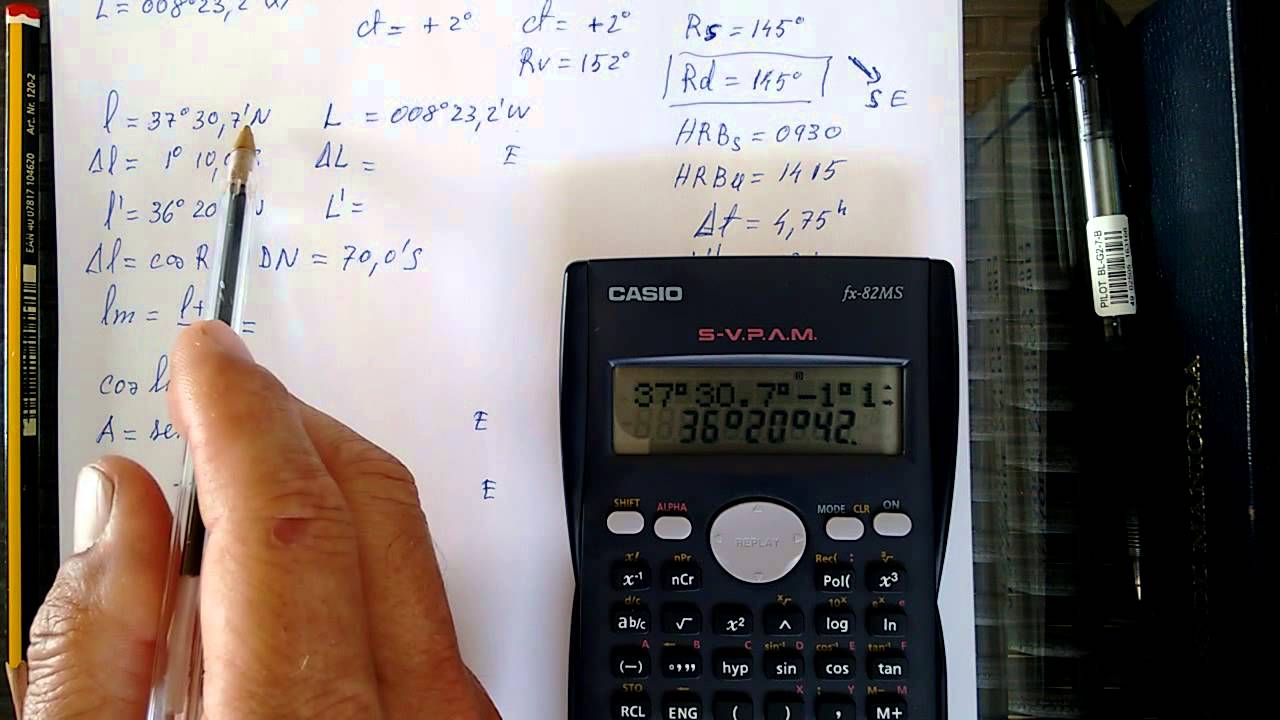 L = 008°23,2'W
ct = +2°
ct = +2°
Rv = 152°
Rs = 145°
Rd = 145°
S E
l = 37°30,7'N
L = 008°23,2'W
HRBs = 0930
Δl = 1° 10,
ΔL =
E
HRBu = 1415
l' = 36°20
L' =
Δt = 4,75ʰ
Δl = cos R
DN = 70,0'S
lm = l+
=
cos l
A = se
E
E
CASIO
fx-82MS
S-V.P.A.M.
37°30.7°-1°1
36°20°42.
SHIFT
ALPHA
REPLAY
MODE
CLR
ON
x!
nPr
Rec(
:
³√
x⁻¹
nCr
Pol(
x³
d/c
ˣ√
10ˣ
eˣ
e
ab/c
√
x²
^
log
ln
A
←
B
C
sin⁻¹
D
cos⁻¹
E
tan⁻¹
F
(−)
°,,,
hyp
sin
cos
tan
STO
←
X
;
Y
M−
M
RCL
ENG
(
)
,
M+
Art. Nr. 120-2
EAN 40 07817 104620
PILOT BL-G2-7-B